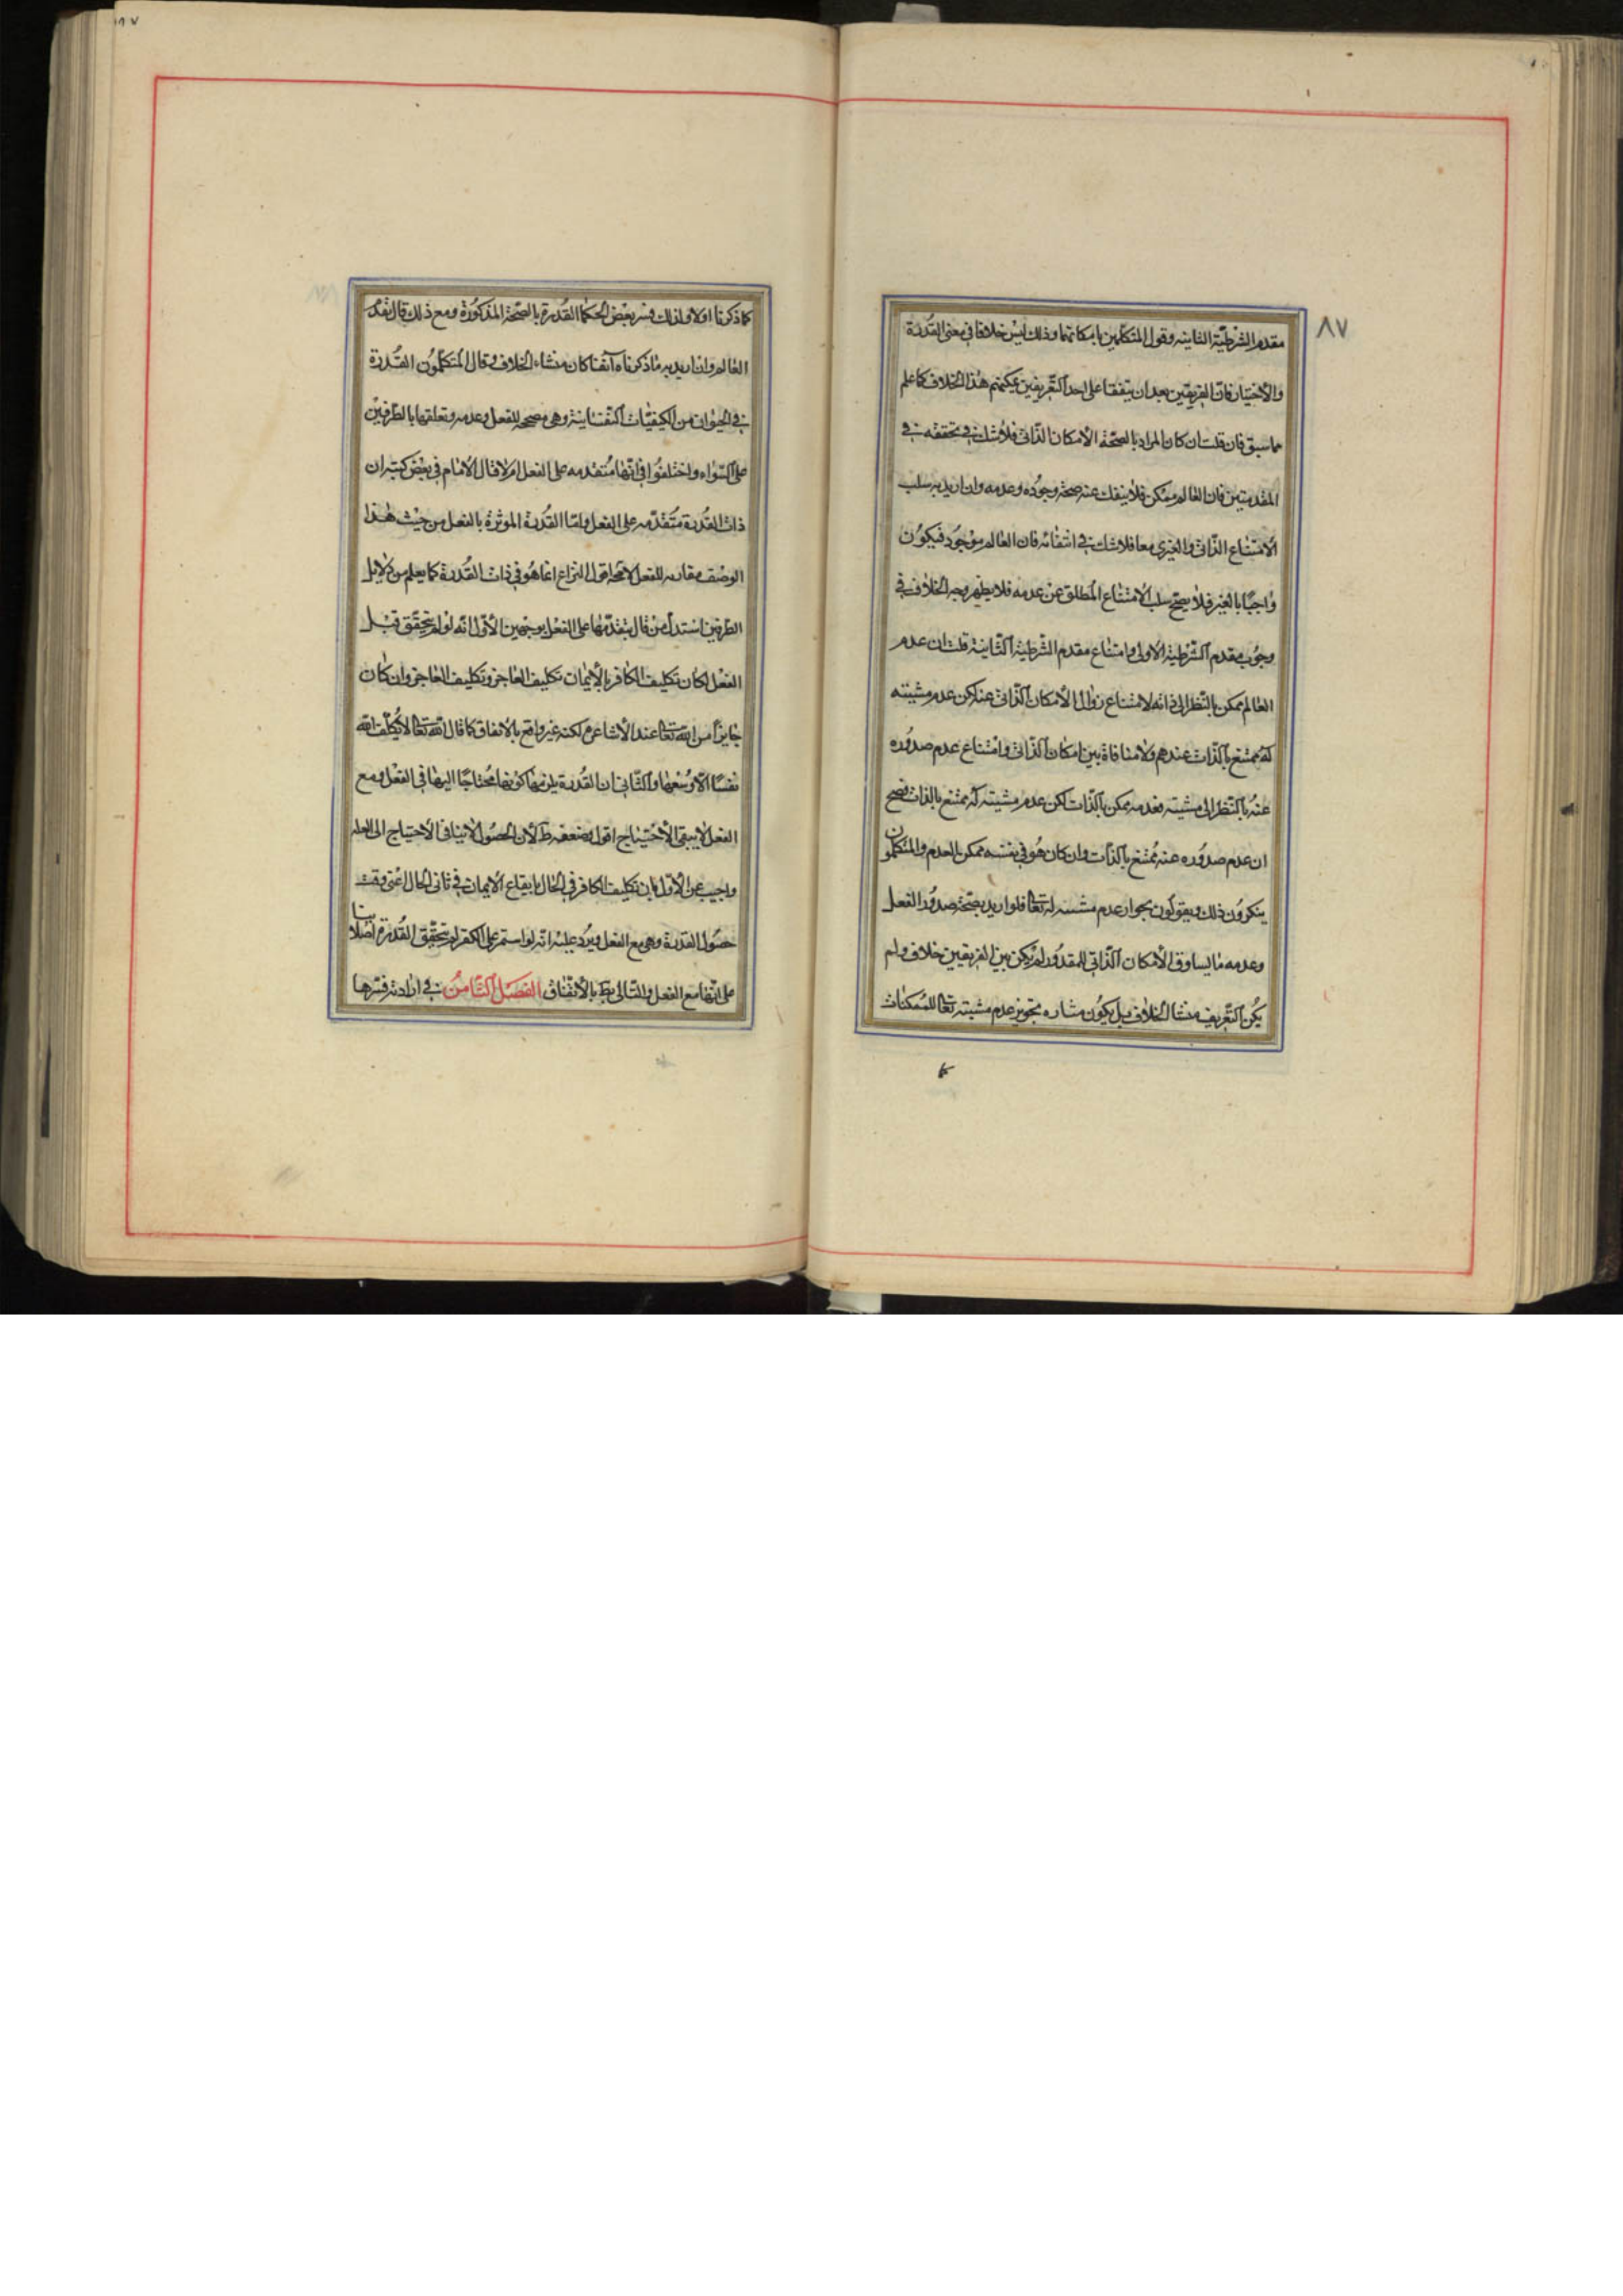 ٨٧
مقدم الشرطية الثانية وقول المتكلمين بامكانهما وذلك ليس خلافا في معنى القدرة
والاختيار فان الفريقين بعد ان يتفقا على احد التعريفين يمكنهم هذا الخلاف كما علم
مما سبق فان قلت ان كان المراد بالصحة الامكان الذاتى فلا شك في تحققه في
المقدمتين فان العالم ممكن فلا ينفك عنه صحة وجوده وعدمه وان اريد به سلب
الامتناع الذاتى والغيرى معا فلا شك في انتفائه فان العالم موجود فيكون
واجبا بالغير فلا يصح سلب الامتناع المطلق عن عدمه فلا يظهر وجه الخلاف في
وجوب مقدم الشرطية الاولى وامتناع مقدم الشرطية الثانية قلت ان عدم
العالم ممكن بالنظر الى ذاته لامتناع زوال الامكان الذاتى عنه لكن عدم مشيته
له ممتنع بالذات عندهم ولا منافاة بين امكان الذاتى وامتناع عدم صدوره
عنه بالنظر الى مشيته فعدمه ممكن بالذات لكن عدم مشيته له ممتنع بالذات فصح
ان عدم صدوره عنه ممتنع بالذات وان كان هو في نفسه ممكن العدم والمتكلمون
ينكرون ذلك ويقولون بجواز عدم مشيته له تعالى فلو اريد بصحة صدور الفعل
وعدمه ما يساوق الامكان الذاتى للمقدور لم يكن بين الفريقين خلاف ولم
يكن التعريف منشا الخلاف بل يكون مثاره تجويز عدم مشيته تعالى للممكنات
كما ذكرنا اولا ولذلك فسر بعض الحكما القدرة بالصحة المذكورة ومع ذلك قال بقدم
العالم وان اريد به ما ذكرناه آنفا كان منشاء الخلاف وقال المتكلمون القدرة
في الحيوان من الكيفيات النفسانية وهى مصححه للفعل وعدمه وتعلقها بالطرفين
على السواء واختلفوا في انها متقدمه على الفعل ام لا قال الامام في بعض كتبه ان
ذات القدرة متقدمه على الفعل واما القدرة الموثرة بالفعل من حيث هذا
الوصف مقارنه للفعل لا محة اقول النزاع انما هو في ذات القدرة كما يعلم من دلايل
الطرفين استدل من قال بتقدمها على الفعل بوجهين الاول انه لو لم يتحقق قبل
الفعل لكان تكليف الكافر بالايمان تكليف العاجز وتكليف العاجز وان كان
جايزا من الله تعالى عند الاشاعره لكنه غير واقع بالاتفاق كما قال الله تعالى لا يكلف الله
نفسا الا وسعها والثانى ان القدرة يلزمها كونها محتاجا اليها في الفعل ومع
الفعل لا يبقى الاحتياج اقول وضعفه ظ لان الحصول لا ينافى الاحتياج الى العلة
واجيب عن الاول بان تكليف الكافر في الحال بايقاع الايمان في ثانى الحال اعنى وقت
حصول القدرة وهى مع الفعل ويرد عليه انه لو استمر على الكفر لم يتحقق القدرة اصلا بنا
على انها مع الفعل والتالى بط بالاتفاق الفصل الثامن في ارادته فسرها